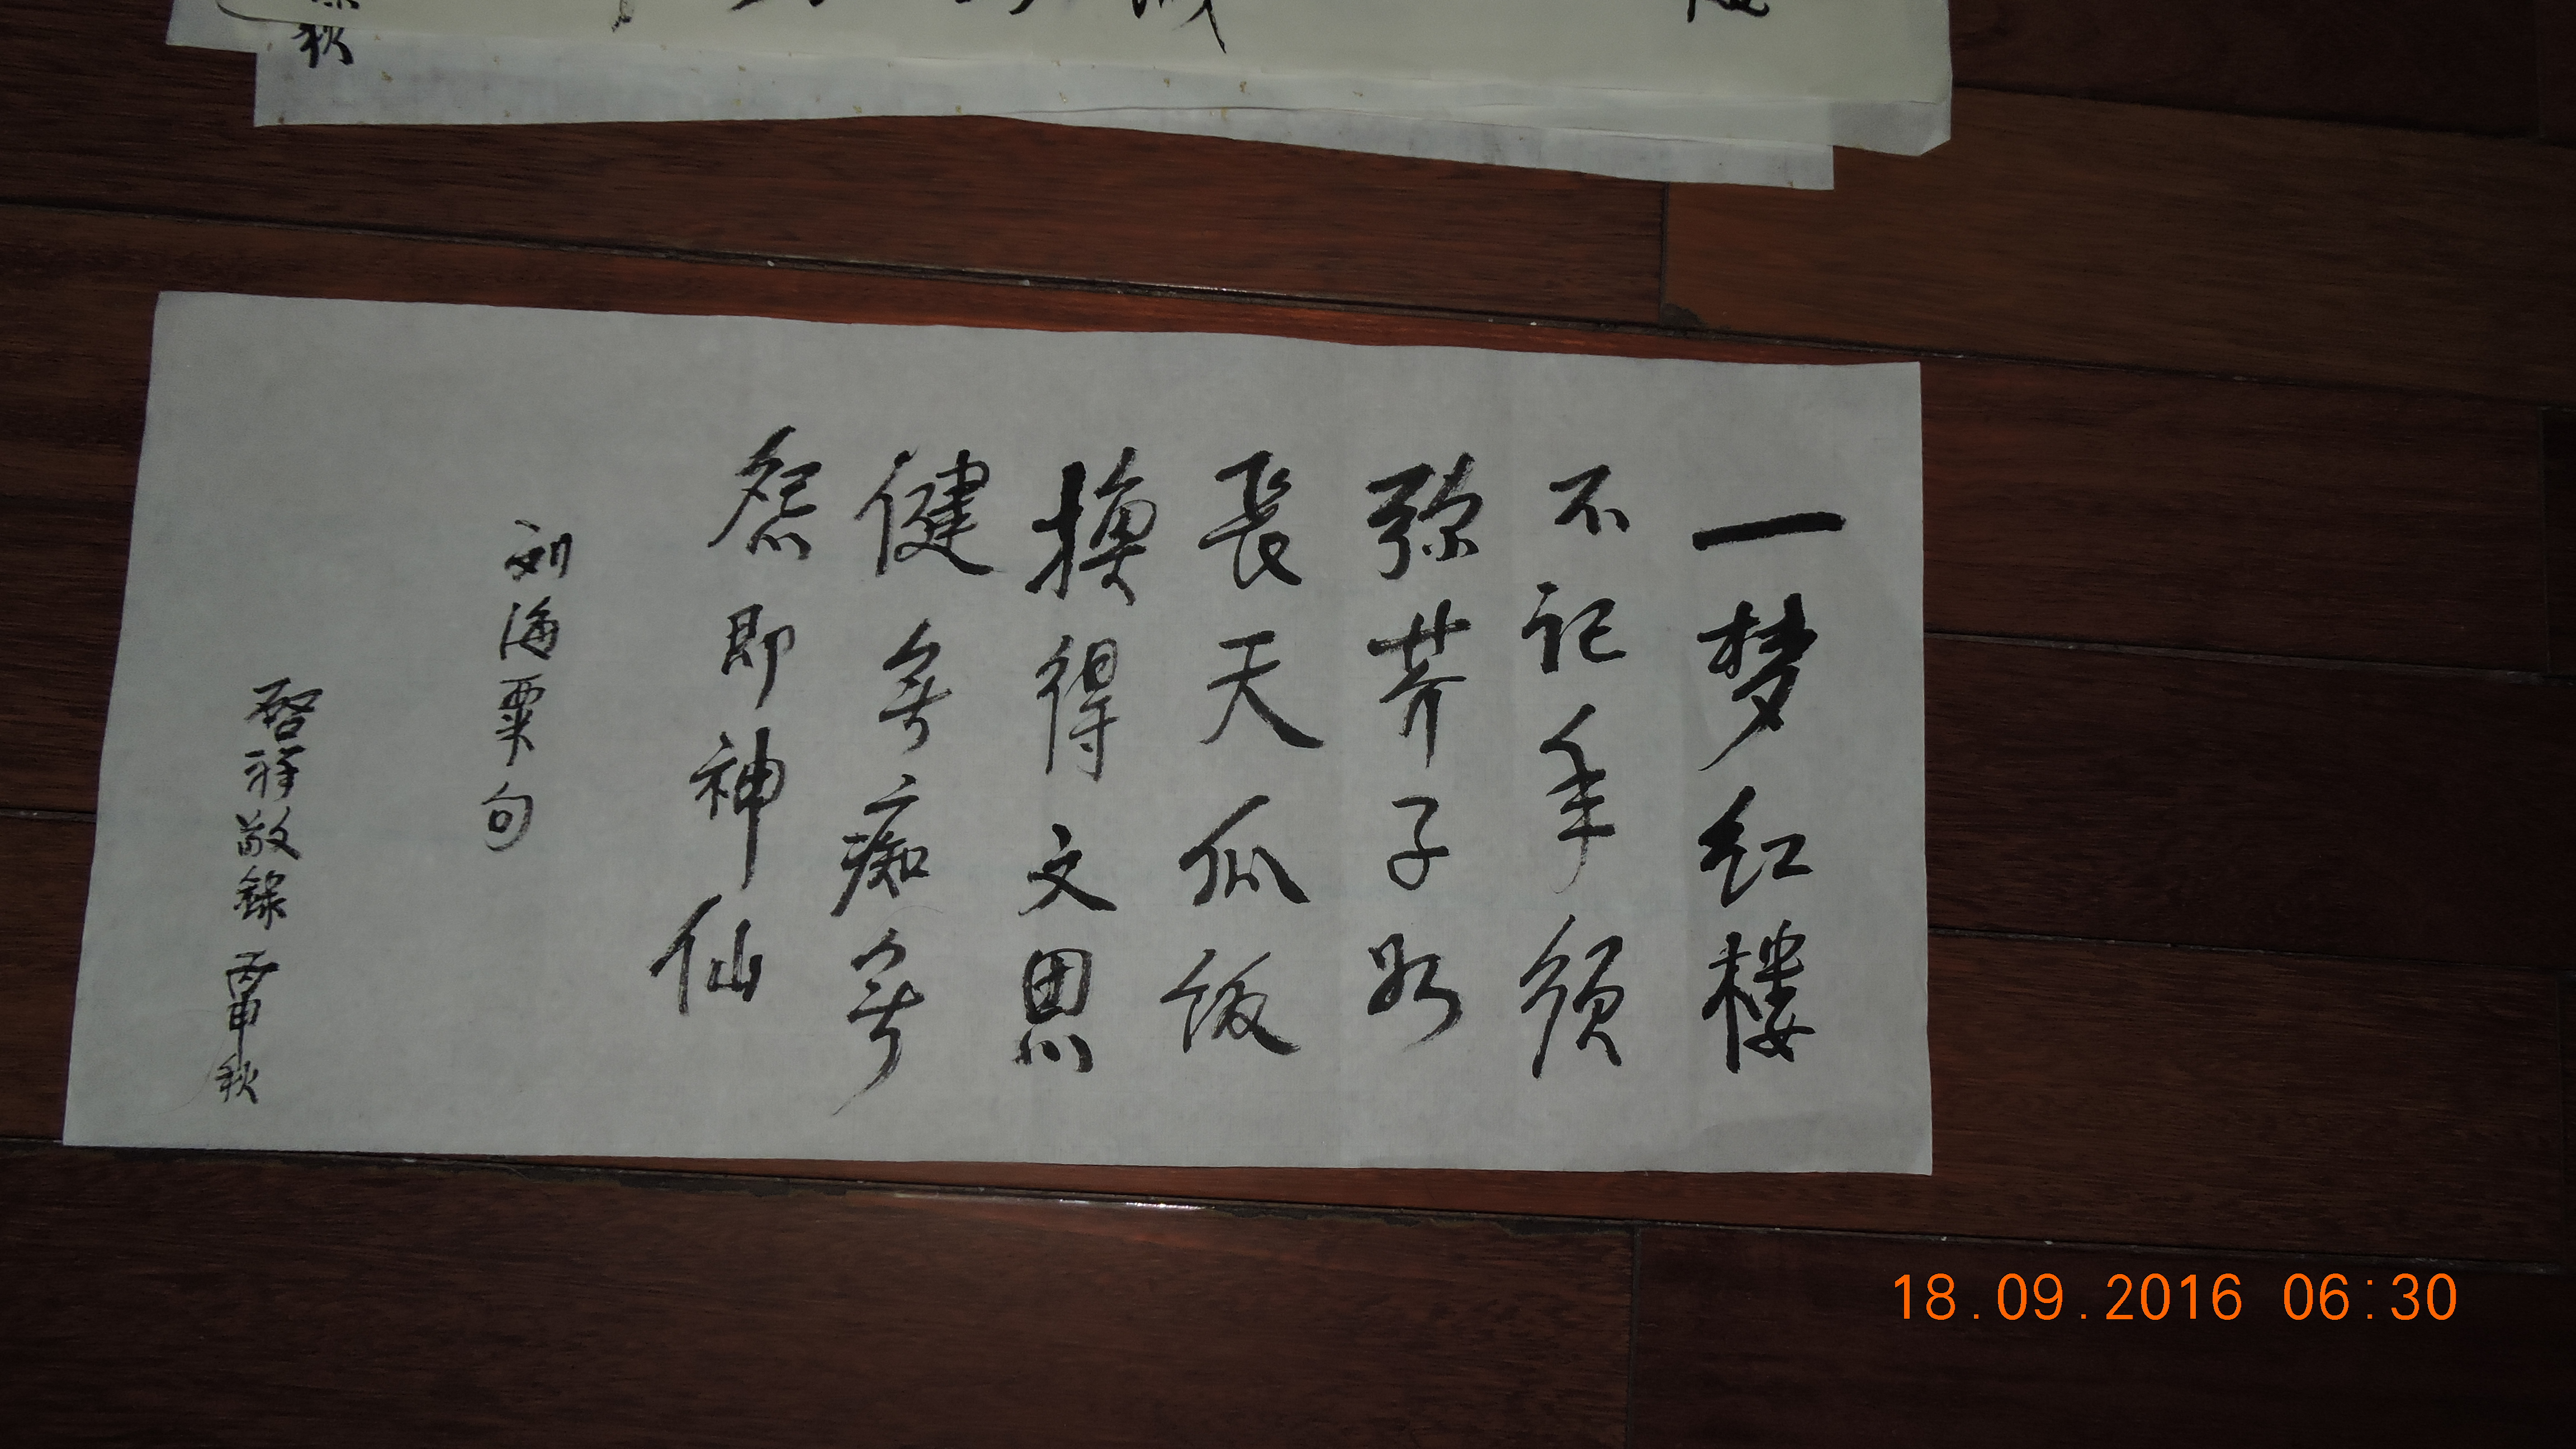 秋
一梦红楼
不记年须
弥芥子如
長天瓜饭
换得文思
健無痴無
怨即神仙
刘海粟句
啓祥敬錄 丙申秋
18.09.2016 06:30